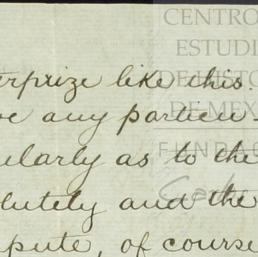 CENTRO
ESTUDI
DE HISTO
DE MEX
FUNDAC
erprize like this.
ve any particu-
ularly as to the
olutely and the
pute, of course